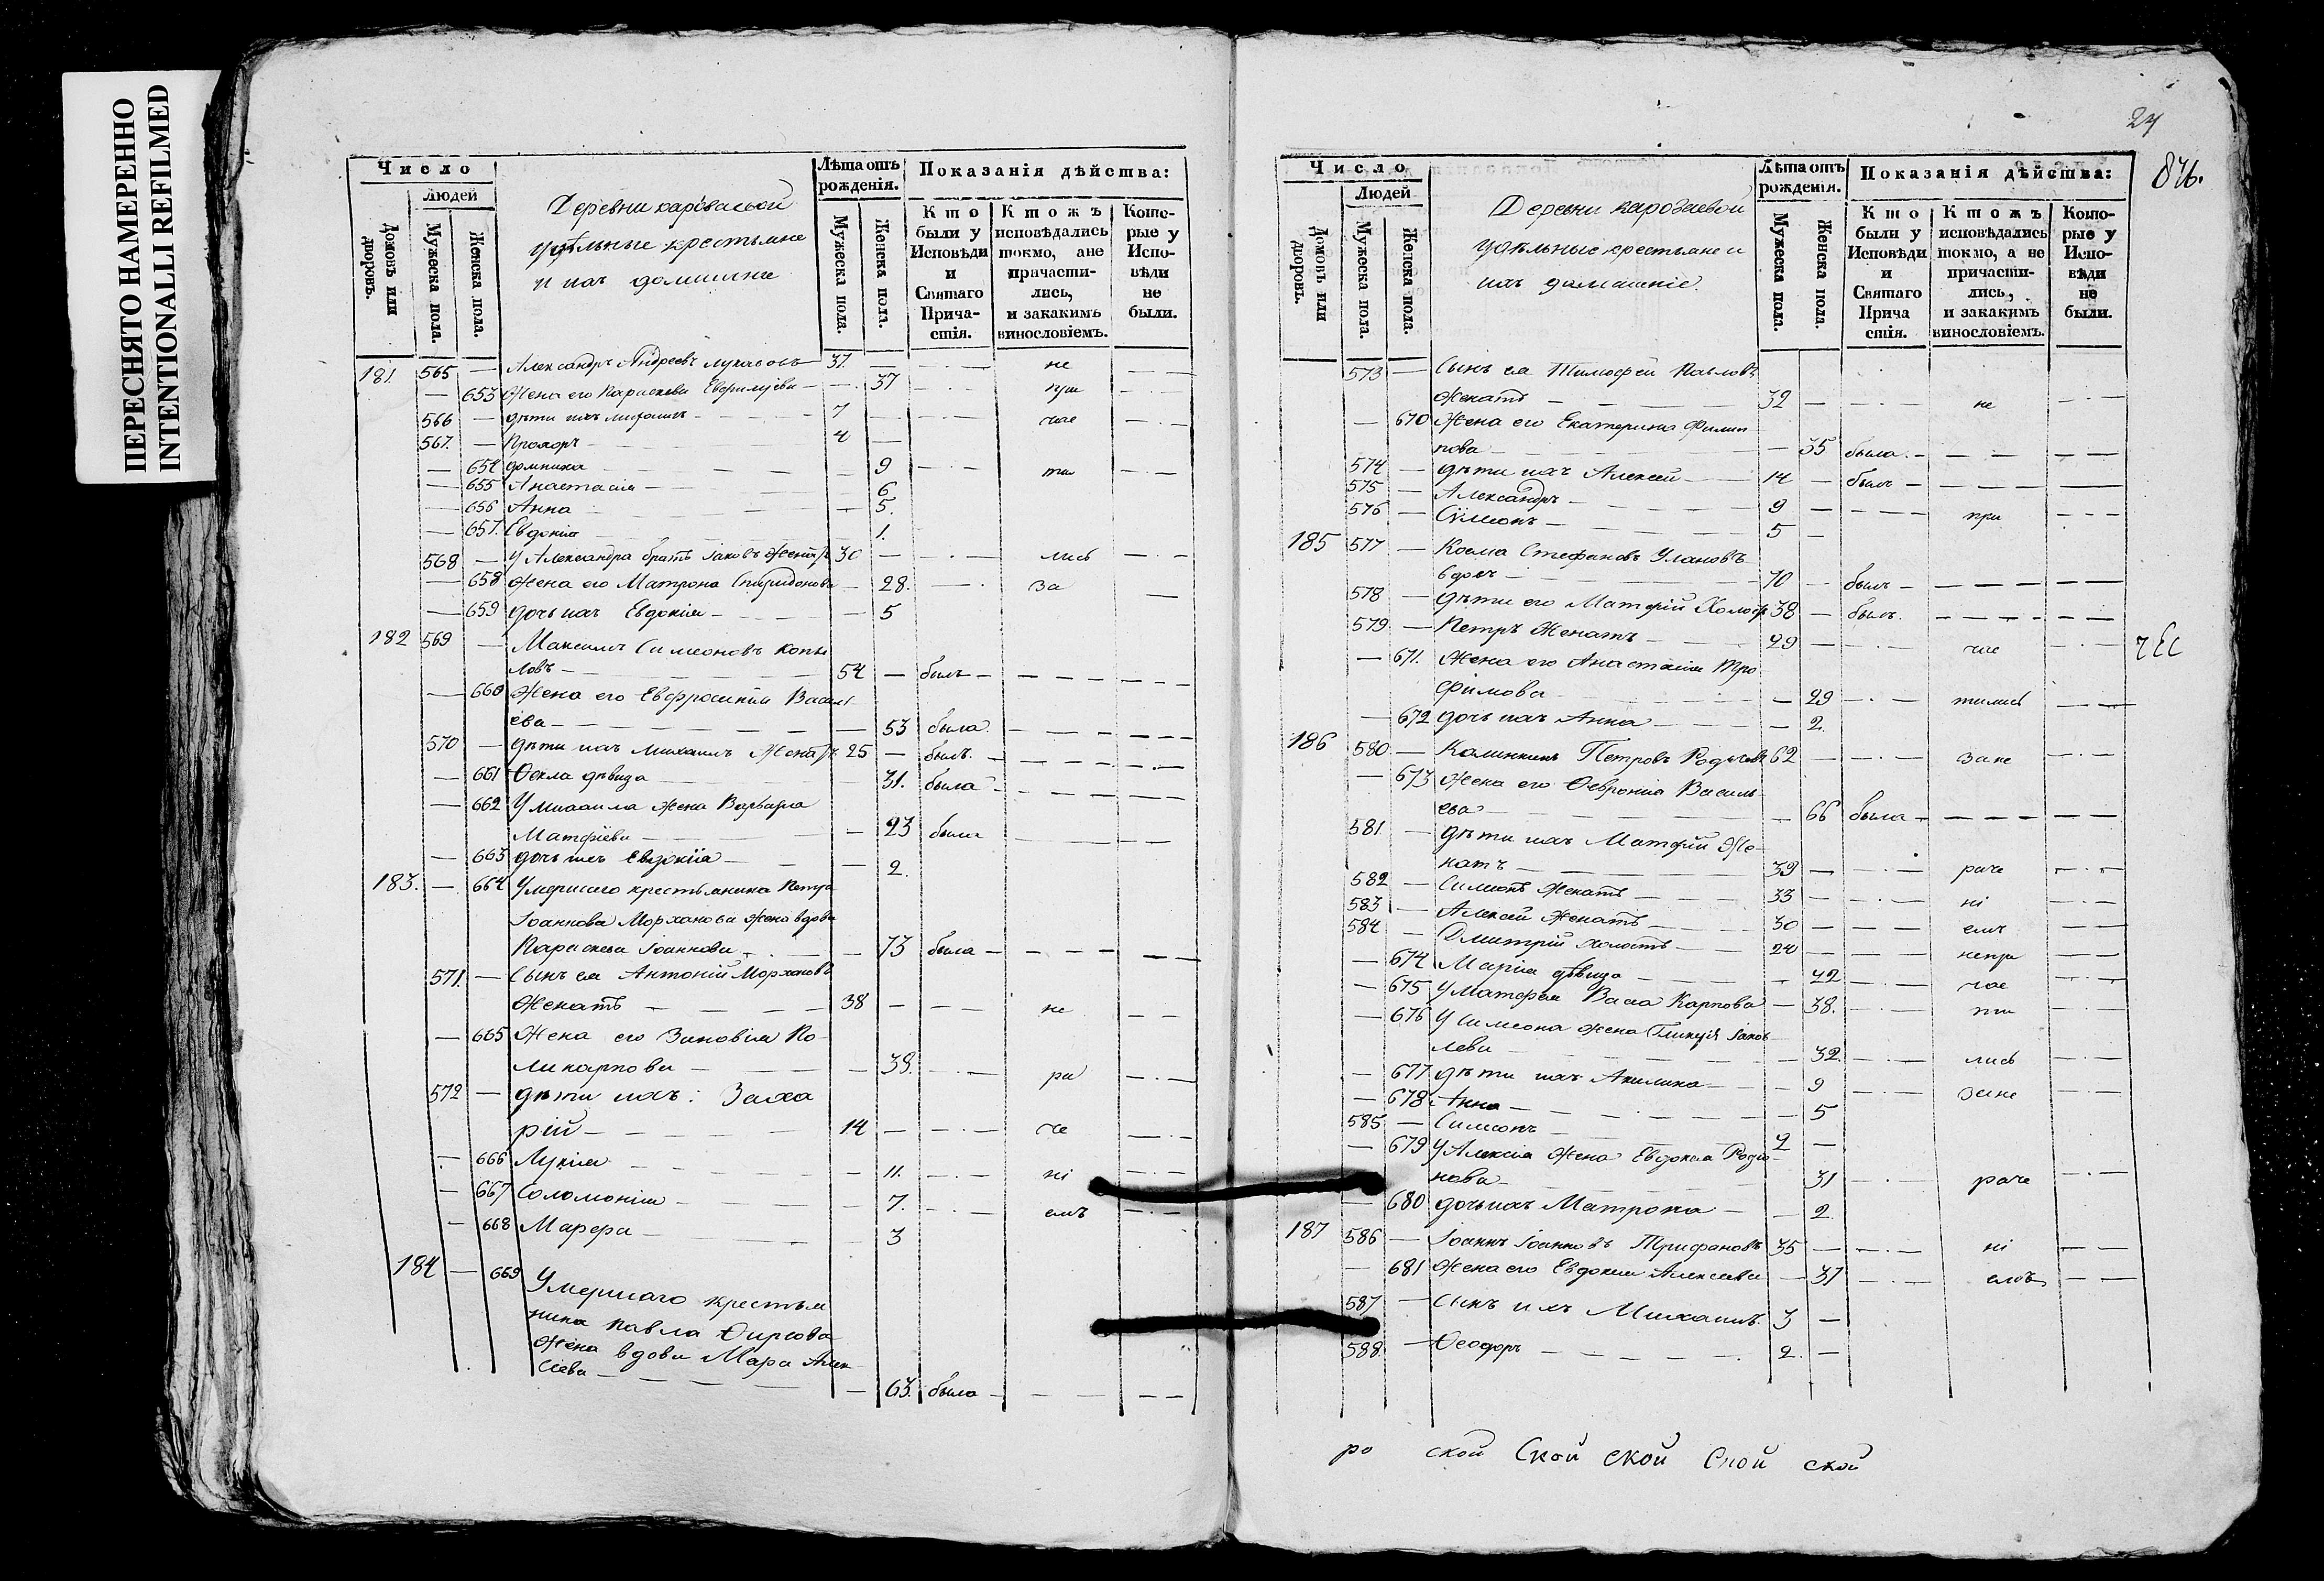 ПЕРЕСНЯТО НАМЕРЕННО
INTENTIONALLI REFILMED
Число
Людей
Домовъ или дворовъ.
Мужеска пола.
Женска пола.
Деревни
удѣльные крестьяне
и ихъ домашніе
Лѣта отъ рожденія.
Мужеска пола.
Женска пола.
Показанія дѣйства:
Кто были у Исповѣди и Святаго Причастія.
Ктожъ исповѣдались токмо, ане причастились, и закакимъ винословіемъ.
Которые у Исповѣди не были.
181 565 — Александръ Андреевъ 37 — не
— 653 Жена его Параскева — 37 при
566 — дѣти ихъ 7 — час
567. — Прохоръ 4 —
— 654 Домника — 9 ти
— 655 Анастасія — 6
— 656 Анна — 5.
— 657. Евдокія 1.
568 — У Александра братъ Іаковъ женатъ 30 — лись
— 658 Жена его Матрона Спиридонова — 28. за
— 659 дочь ихъ Евдокія — 5
182 569 — Максимъ Симеоновъ Копы
ловъ — 54 — былъ —
— 660 Жена его Евфросинія Василь
ева — 53 была
570 — дѣти ихъ Михаилъ женатъ 25 — былъ.
— 661 Ѳекла дѣвица 31. была
— 662 У Михаила жена Варвара
Матфіева — 23 была
— 663 дочь ихъ Евдокія — 2.
183. — 664 Умершаго крестьянина Петра
Іоаннова Морханова жена вдова
Параскева Іоаннова — 73 была —
571. — Сынъ ея Антоній Морхановъ
женатъ — 38 — не
— 665 Жена его Зиновія По
ликарпова — 39. ра
572 — дѣти ихъ: Заха
рій — 14 — че
— 666 Лукія — 11. ні
— 667 Соломонія — 7. емъ
— 668 Марфа — 3
184 — 669 Умершаго крестья
нина Павла Ѳирсова
жена вдова Мара Алек
сіева — 63. была —
24
846.
Число
Людей
Домовъ или дворовъ.
Мужеска пола.
Женска пола.
Деревни
удѣльные крестьяне и
ихъ домашніе.
Лѣта отъ рожденія.
Мужеска пола.
Женска пола.
Показанія дѣйства:
Кто были у Исповѣди и Святаго Прича стія.
Ктожъ исповѣдались токмо, а не причастились, и закакимъ винословіемъ.
Которые у Исповѣди не были.
573 — Сынъ ея Тимофей Павловъ
женатъ — 32 — не
— 670 Жена его Екатерина Филип
пова — 35 была —
574 — дѣти ихъ Алексей 14 — былъ —
575 — Александръ — 9 — при
576 — Сѵмеонъ — 5 —
185 577 — Косма Стефановъ Улановъ
вдовъ — 70 — былъ —
578 — дѣти его Матфій холостъ 38 — былъ.
579. — Петръ женатъ — 29 — час
— 671. Жена его Анастасія Тро
фимова — 29 тились
— 672 дочь ихъ Анна — 2.
186 580 — Калинникъ Петровъ 62 — за не
— 673 Жена его Ѳевронія Василь
ева — 66 была —
581. — дѣти ихъ Матфій же
натъ — 39 — раче
582 — Симеонъ женатъ — 33 — ні
583 — Алексій женатъ — 30 — емъ
584 — Дмитрій холостъ — 20 — непри
— 674 Марія дѣвица — 22 час
— 675 У Матфея Васса Карпова — 38. ти
— 676 У Симеона жена Гликерія Іаков
лева — 32. лись
— 677 дѣти ихъ Акилина — 9 за не
— 678 Анна — 5
585 — Симеонъ 2 —
— 679 У Алексія жена Евдокія Родіо
нова — 31 раче
— 680 дочь ихъ Матрона — 2.
187 586 — Іоаннъ Іоанновъ Трифановъ 35 — ні
— 681 Жена его Евдокія Алексеева — 37 емъ
587 — Сынъ ихъ Михаилъ. 3 —
588. — Ѳеодоръ — 2. —
ро ской Ской ской Ской ской